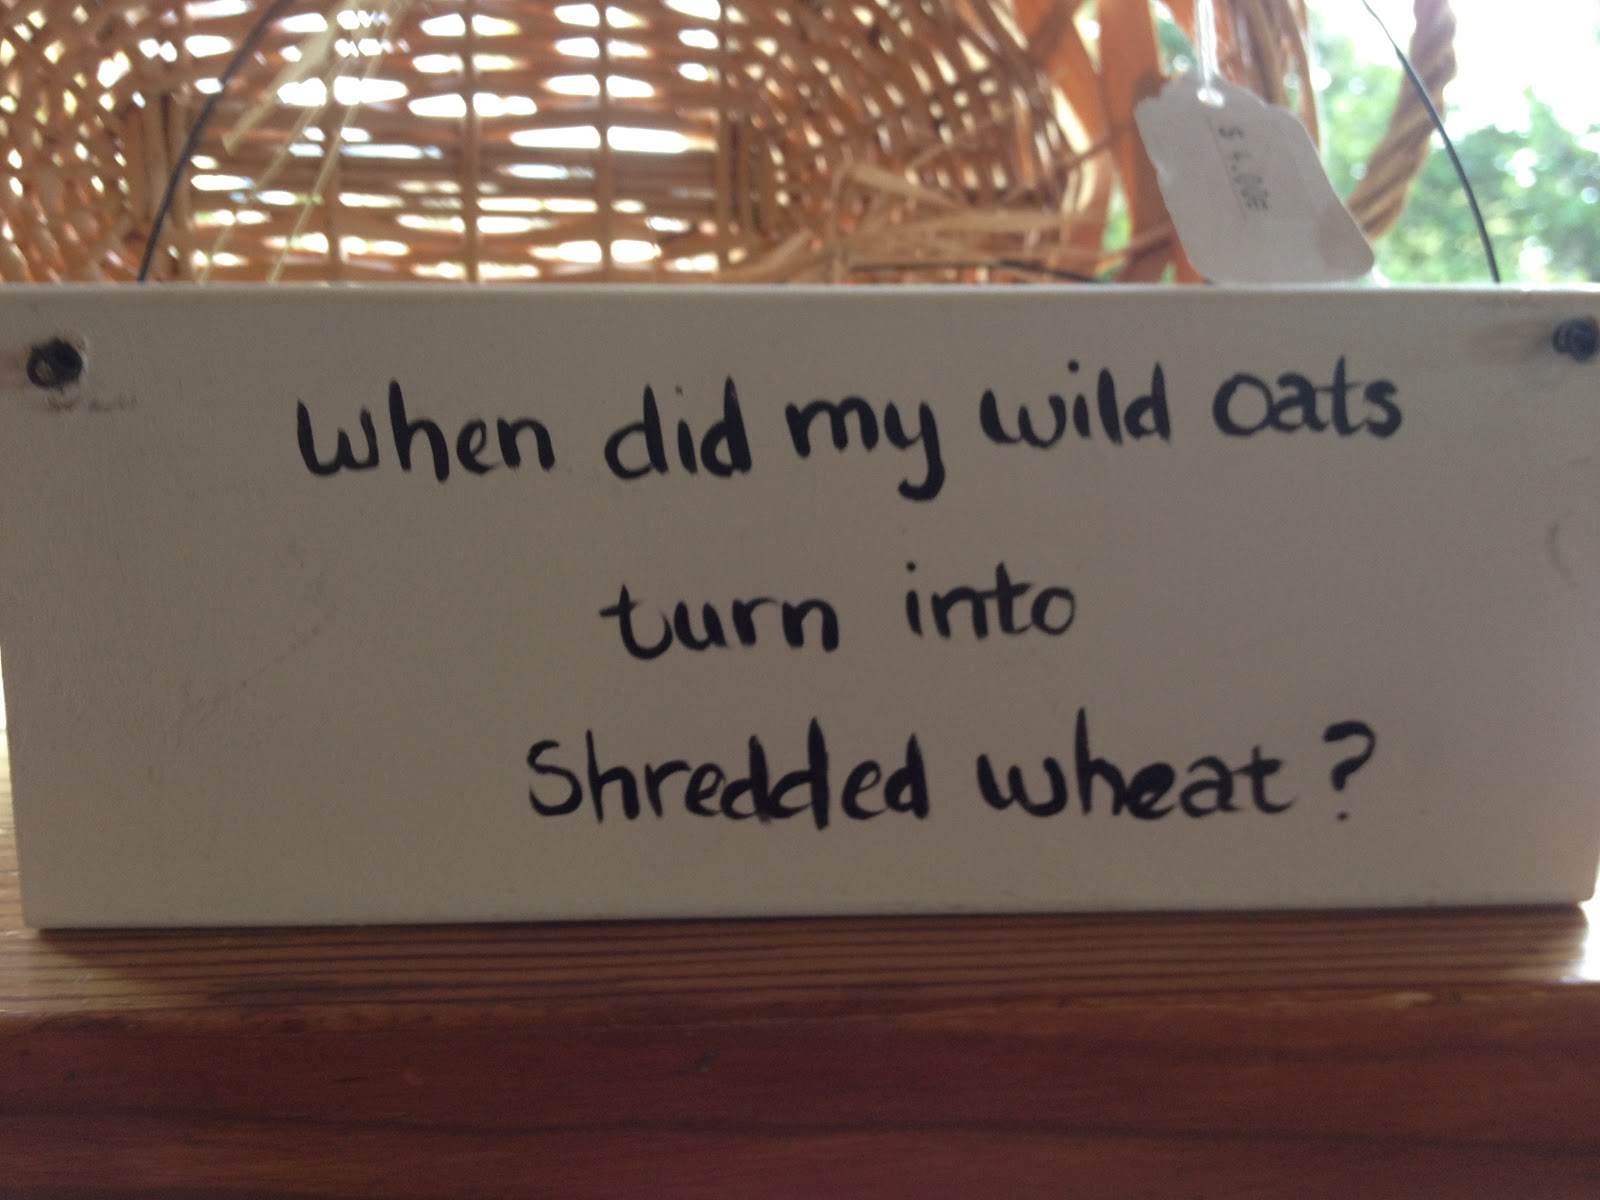 When did my wild oats
turn into
Shredded wheat?